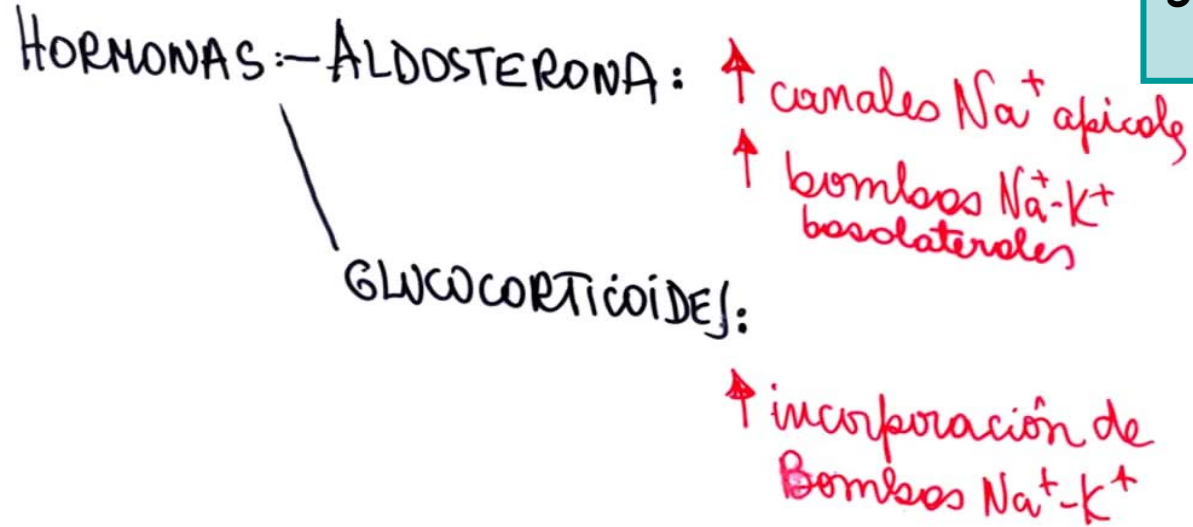 HORMONAS:- ALDOSTERONA: ↑ canales Na⁺ apicales
↑ bombas Na⁺-K⁺
basolaterales
GLUCOCORTICOIDES:
↑ incorporación de
Bombas Na⁺-K⁺